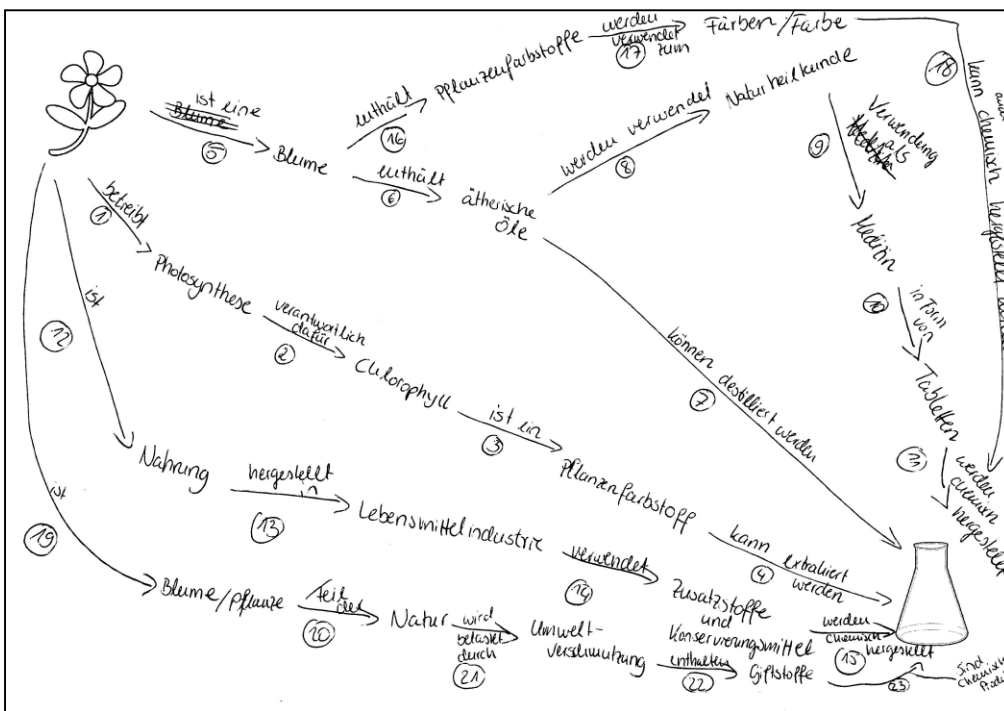 werden
verwendet
zum
17
Pflanzenfarbstoffe
Färben/Farbe
18
kann chemisch hergestellt
enthält
16
ist eine
5
Blume
enthält
6
ätherische
Öle
werden verwendet
8
Naturheilkunde
9
Verwendung
als
Medizin
10
in Form
von
Tabletten
11
werden
chemisch
hergestellt
können destilliert werden
7
betreibt
1
Photosynthese
verantwortlich
dafür
2
Chlorophyll
ist ein
3
Pflanzenfarbstoff
kann extrahiert
werden
4
ist
12
Nahrung
hergestellt
in
13
Lebensmittelindustrie
verwendet
14
Zusatzstoffe
und
Konservierungsmittel
werden
chemisch
hergestellt
15
ist
19
Blume/Pflanze
Teil
der
20
Natur
wird
belastet
durch
21
Umwelt-
verschmutzung
enthalten
22
Giftstoffe
23
sind